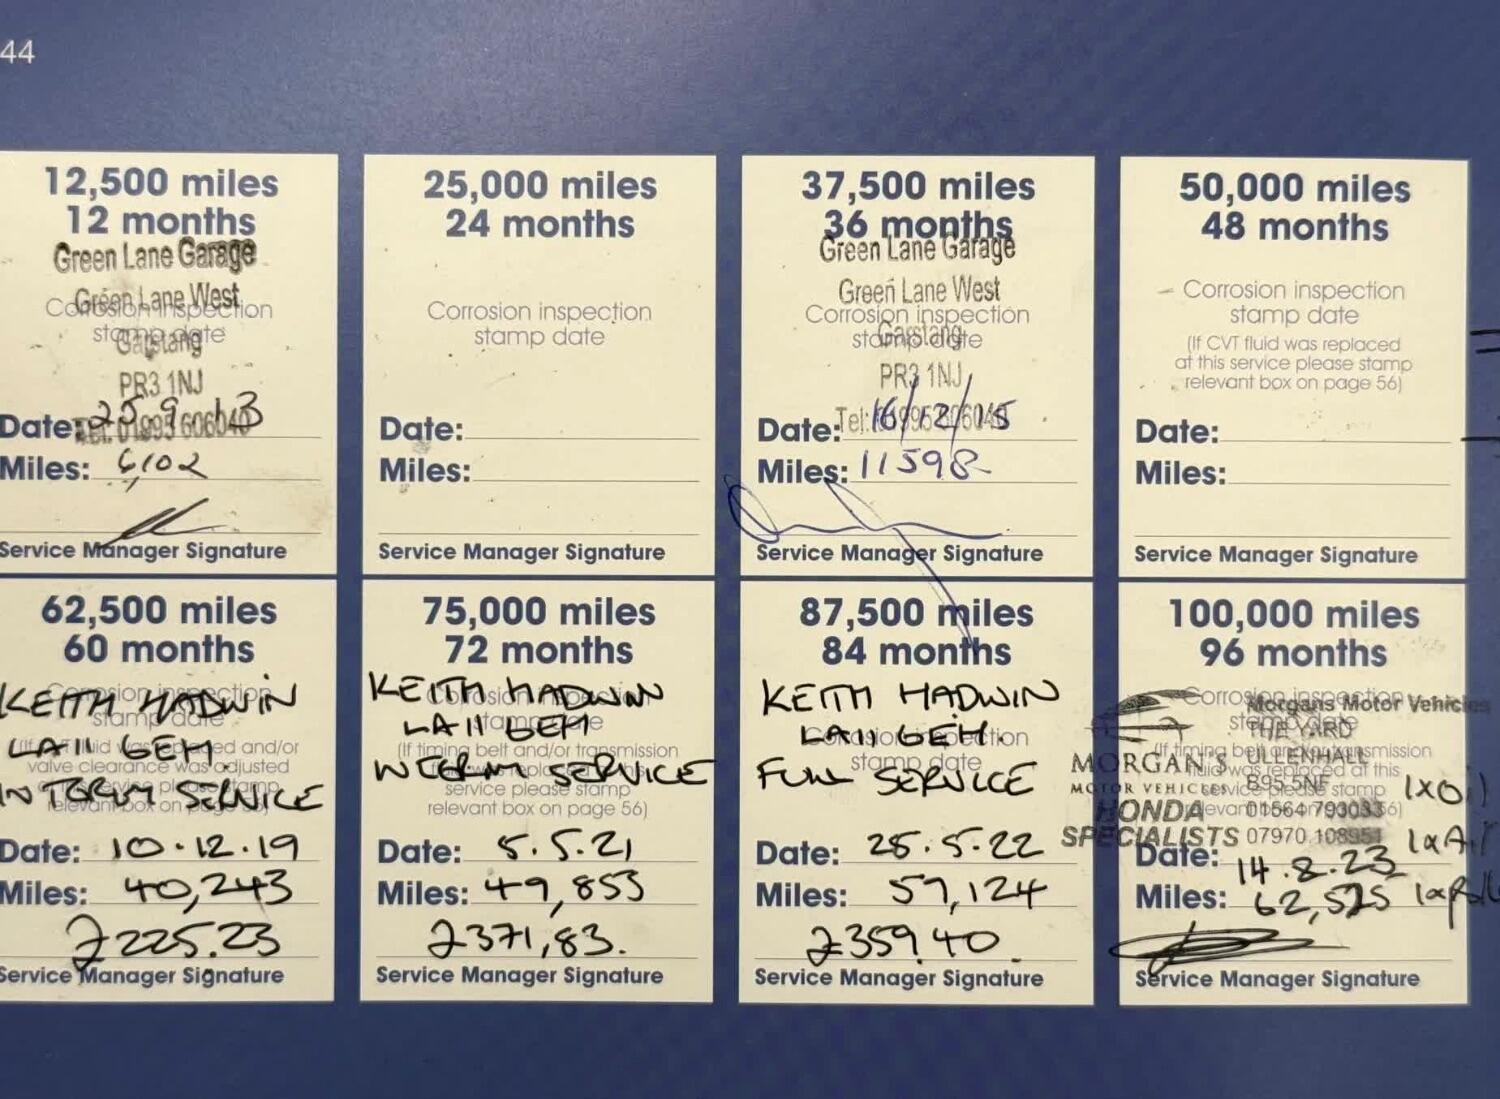 44
12,500 miles
12 months
Green Lane Garage
Green Lane West
Corrosion inspection
stamp date
Garstang
PR3 1NJ
Date: 25 9 13
Tel: 01995 606040
Miles: 6,102
Service Manager Signature
25,000 miles
24 months
Corrosion inspection
stamp date
Date:
Miles:
Service Manager Signature
37,500 miles
36 months
Green Lane Garage
Green Lane West
Corrosion inspection
Garstang
stamp date
PR3 1NJ
Tel: 01995 606040
Date: 16/12/15
Miles: 11598
Service Manager Signature
50,000 miles
48 months
Corrosion inspection
stamp date
(If CVT fluid was replaced
at this service please stamp
relevant box on page 56)
Date:
Miles:
Service Manager Signature
62,500 miles
60 months
Corrosion inspection
stamp date
KEITH HADWIN
LA11 6EH.
fluid was replaced and/or
valve clearance was adjusted
INTERIM SERVICE
relevant box on page
Date: 10.12.19
Miles: 40,243
£225.23
Service Manager Signature
75,000 miles
72 months
KEITH HADWIN
Corrosion inspection
LA11 6EH
stamp date
(If timing belt and/or transmission
INTERIM SERVICE
service please stamp
relevant box on page 56)
Date: 5.5.21
Miles: 49,853
£371,83.
Service Manager Signature
87,500 miles
84 months
KEITH HADWIN
LA11 6EH.
Corrosion inspection
stamp date
FULL SERVICE
Date: 25.5.22
Miles: 57,124
£359.40
Service Manager Signature
100,000 miles
96 months
Corrosion inspection
stamp date
Morgans Motor Vehicles
THE YARD
ULLENHALL
(If timing belt and/or transmission
fluid was replaced at this
service please stamp
relevant box on page 56)
MORGAN'S
MOTOR VEHICLES
B95 5NF
HONDA
01564 793033
SPECIALISTS
07970 108951
1xOil
1xAir
Date: 14.8.23
Miles: 62,525
Service Manager Signature